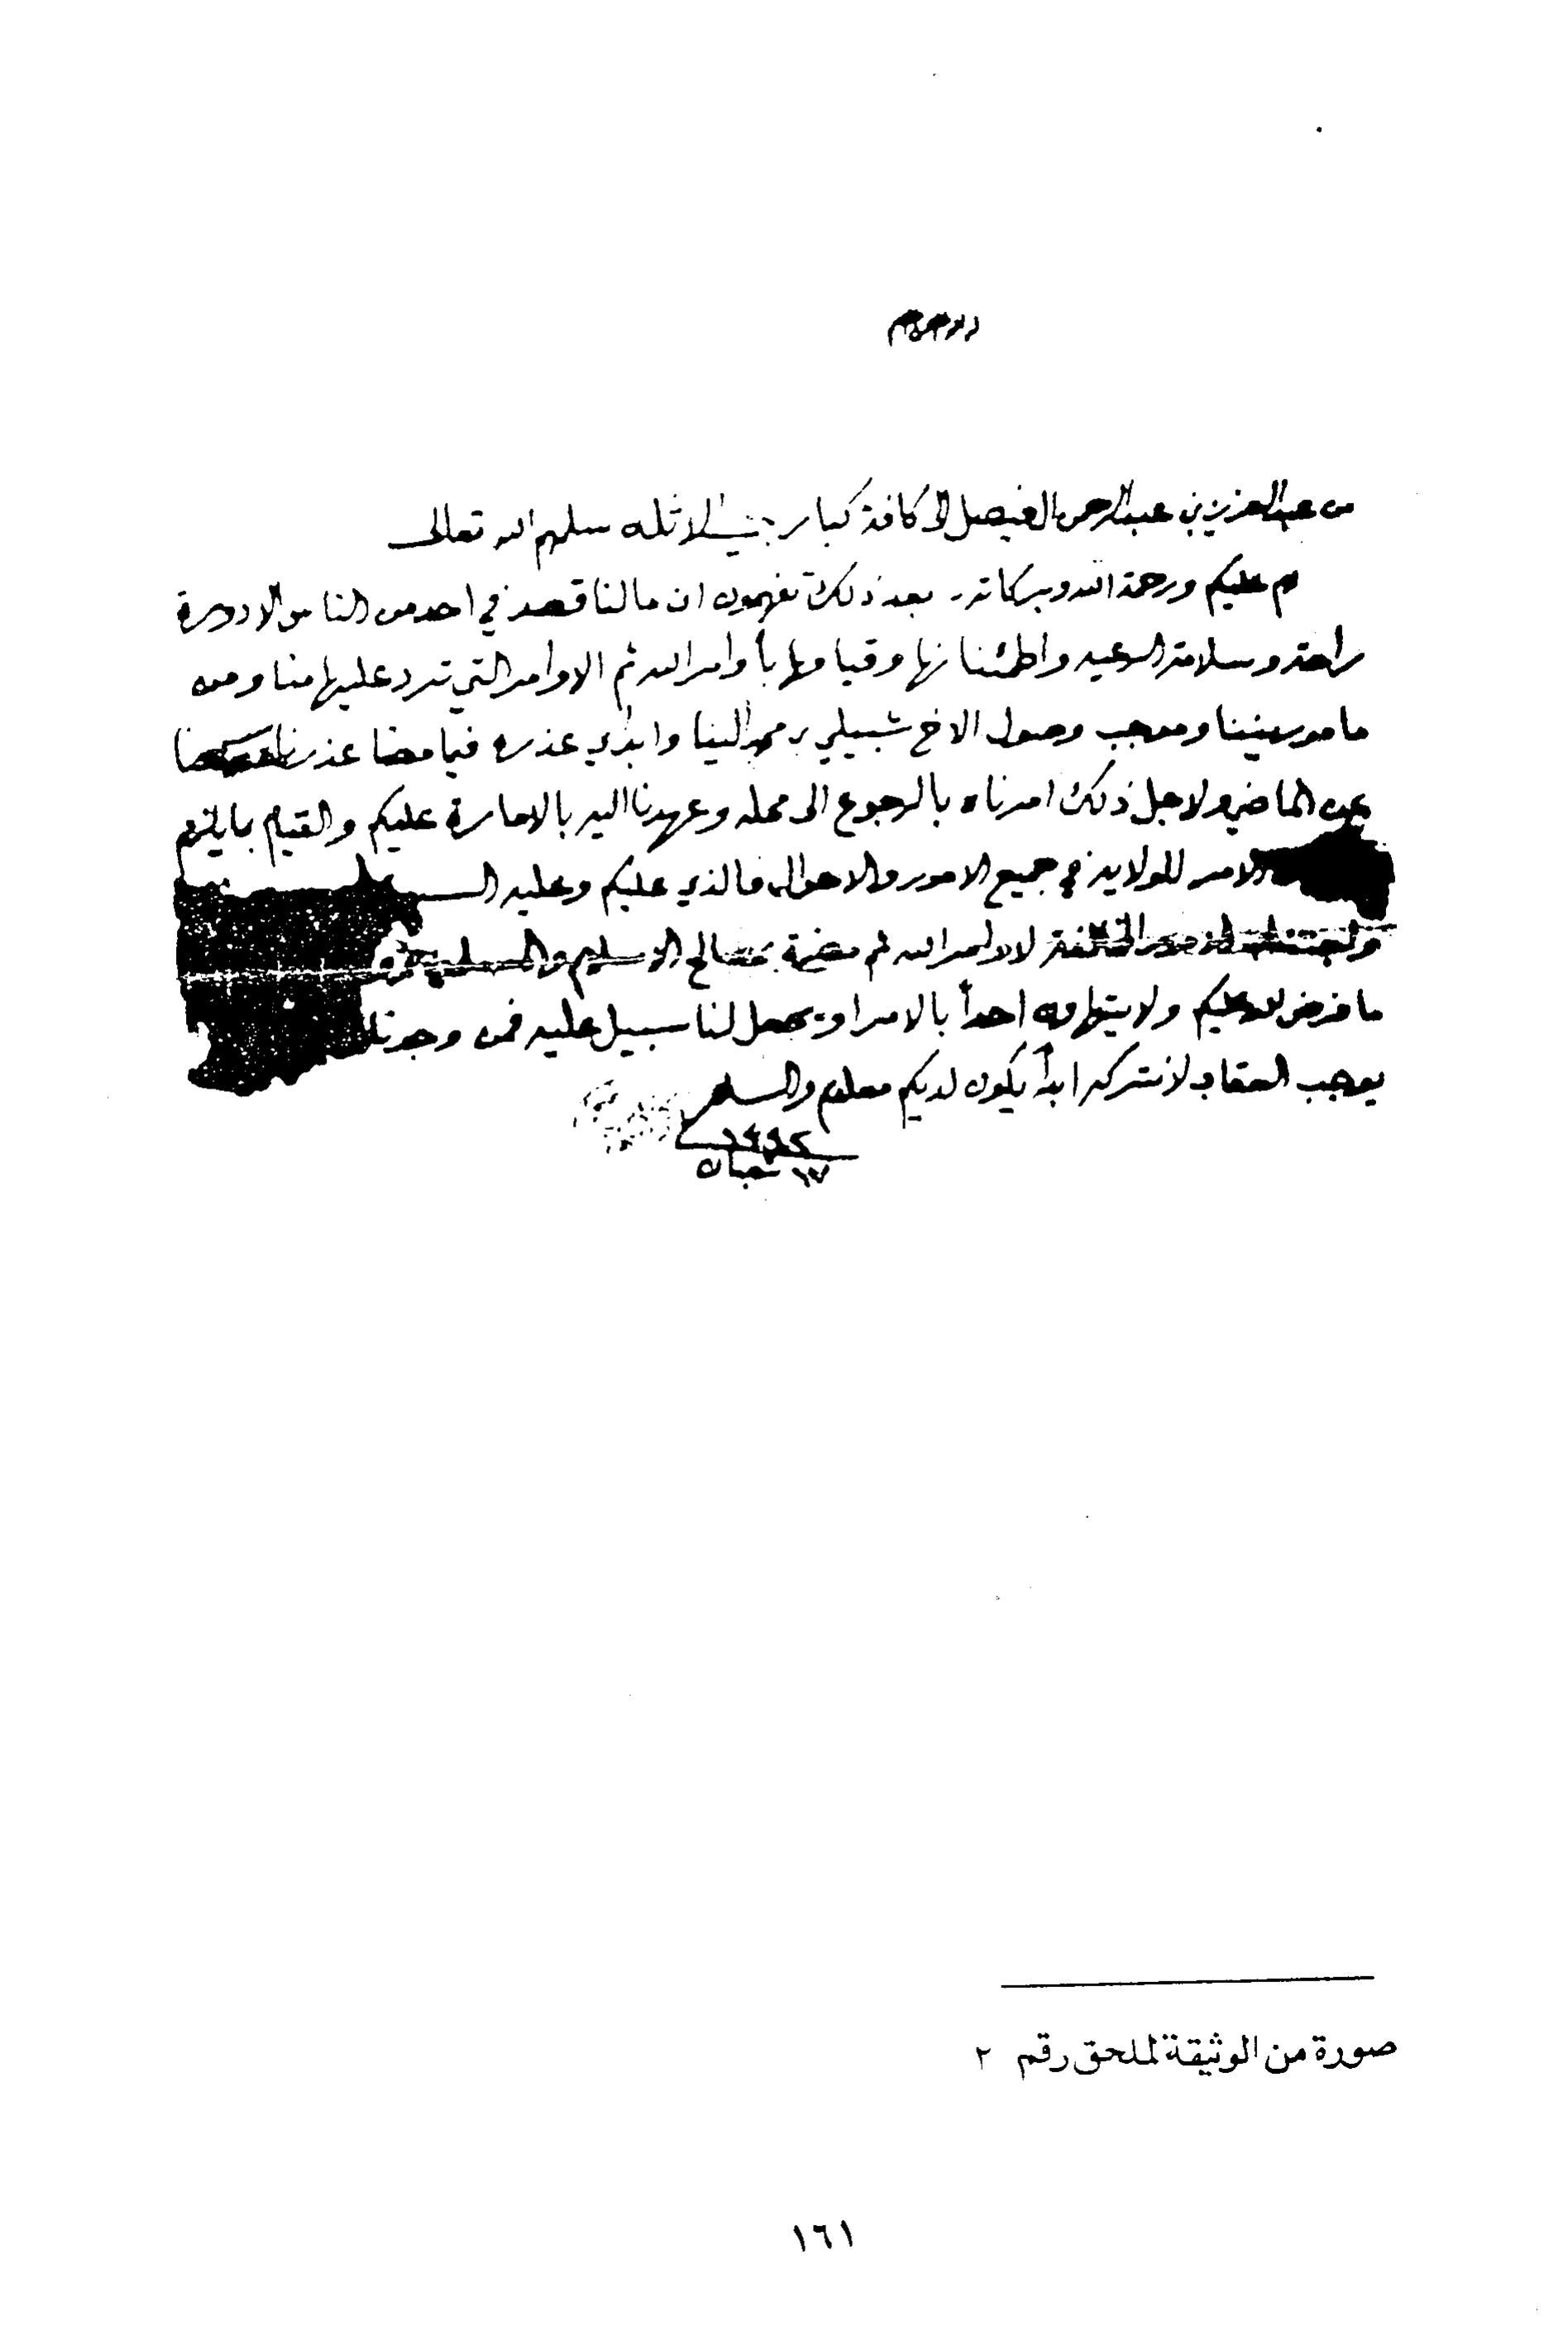 من عبدالعزيز بن عبدالرحمن الفيصل الى كافة كبار الاثله سلمهم الله تعالى
عليكم ورحمة الله وبركاته. بعد ذلك تفهمون ان مالنا قصد في احد من الناس الا دوره
راحة وسلامة الرعيه واطمئنانها وقيامها بأوامر الله ثم الاوامر التي ترد عليها منا ومن
مامورينا وموجب وصول الاخ شبيلي بن محمد الينا وابدى عذره فيما مضا عذرناه
عن الماضي ولاجل ذلك امرناه بالرجوع الى محله وعهدنا اليه بالامارة عليكم والقيام بما يلزم
الامر للولايه في جميع الامور والاحوال فالذي عليكم وعليه
المخالفة لاوامر الله ثم مضرة بمصالح الاسلام والمسلمين
ما فرض الله عليكم ولا يتهاون احداً بالامر او يجعل لنا سبيل عليه فمن وجدنا
يوجب العقاب لانتركه ابداً يكون لديكم معلوم والسلام
١٧ شعبان
صورة من الوثيقة لملحق رقم ٢
١٦١